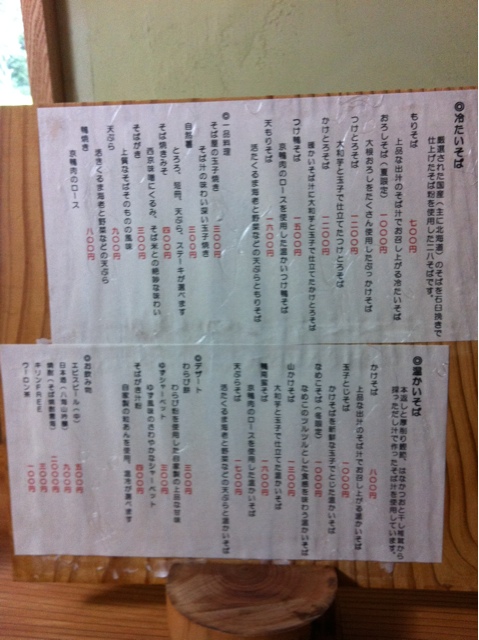 ◎冷たいそば
厳選された国産(主に北海道)のそばを石臼挽きで
仕上げたそば粉を使用した二八そばです。
もりそば 七〇〇円
上品な出汁のそば汁でお召し上がる冷たいそば
おろしそば(夏限定) 一〇〇〇円
大根おろしをたくさん使用したぶっかけそば
つけとろそば 一一〇〇円
大和芋と玉子で仕立てたつけとろそば
かけとろそば 一二〇〇円
暖かいそば汁と大和芋と玉子で仕立てたかけとろそば
つけ鴨そば 一五〇〇円
京鴨肉のロースを使用した温かいつけ鴨そば
天もりそば 一六〇〇円
活たくるま海老と野菜などの天ぷらともりそば
◎一品料理
そば屋の玉子焼き 三〇〇円
そば汁の味わい深い玉子焼き
自然薯 三〇〇円
とろろ、短冊、天ぷら、ステーキが選べます
そば焼きみそ 四〇〇円
西京味噌にくるみ、そば米との絶妙な味わい
そばがき 三〇〇円
上質なそばそのものの風味
天ぷら 九〇〇円
活きくるま海老と野菜などの天ぷら
鴨焼き 八〇〇円
京鴨肉のロース
◎温かいそば
本返しと厚削り鰹節、はなかつおと干し椎茸から
採っただし汁で作ったそば汁を使用しています。
かけそば 八〇〇円
上品な出汁のそば汁でお召し上がる温かいそば
玉子とじそば 一〇〇〇円
かけそばを新鮮な玉子でとじた温かいそば
なめこそば(冬限定) 一〇〇〇円
なめこのツルツルとした食感を味わう温かいそば
山かけそば 一三〇〇円
大和芋と玉子で仕立てた温かいそば
鴨南蛮そば 一六〇〇円
京鴨肉のロースを使用した温かいそば
天ぷらそば 一七〇〇円
活たくるま海老と野菜などの天ぷらと温かいそば
◎デザート
わらび餅 三〇〇円
わらび粉を使用した自家製の上品な甘味
ゆずシャーベット 三〇〇円
ゆず風味のさわやかなシャーベット
そばがき汁粉 四〇〇円
自家製の粒あんを使用、温冷が選べます
◎お飲み物
エビスビール(中) 五〇〇円
日本酒(八海山吟醸) 九〇〇円
焼酎(そば焼酎蕎麦) 三〇〇円
キリンFREE 三〇〇円
ウーロン茶 一〇〇円